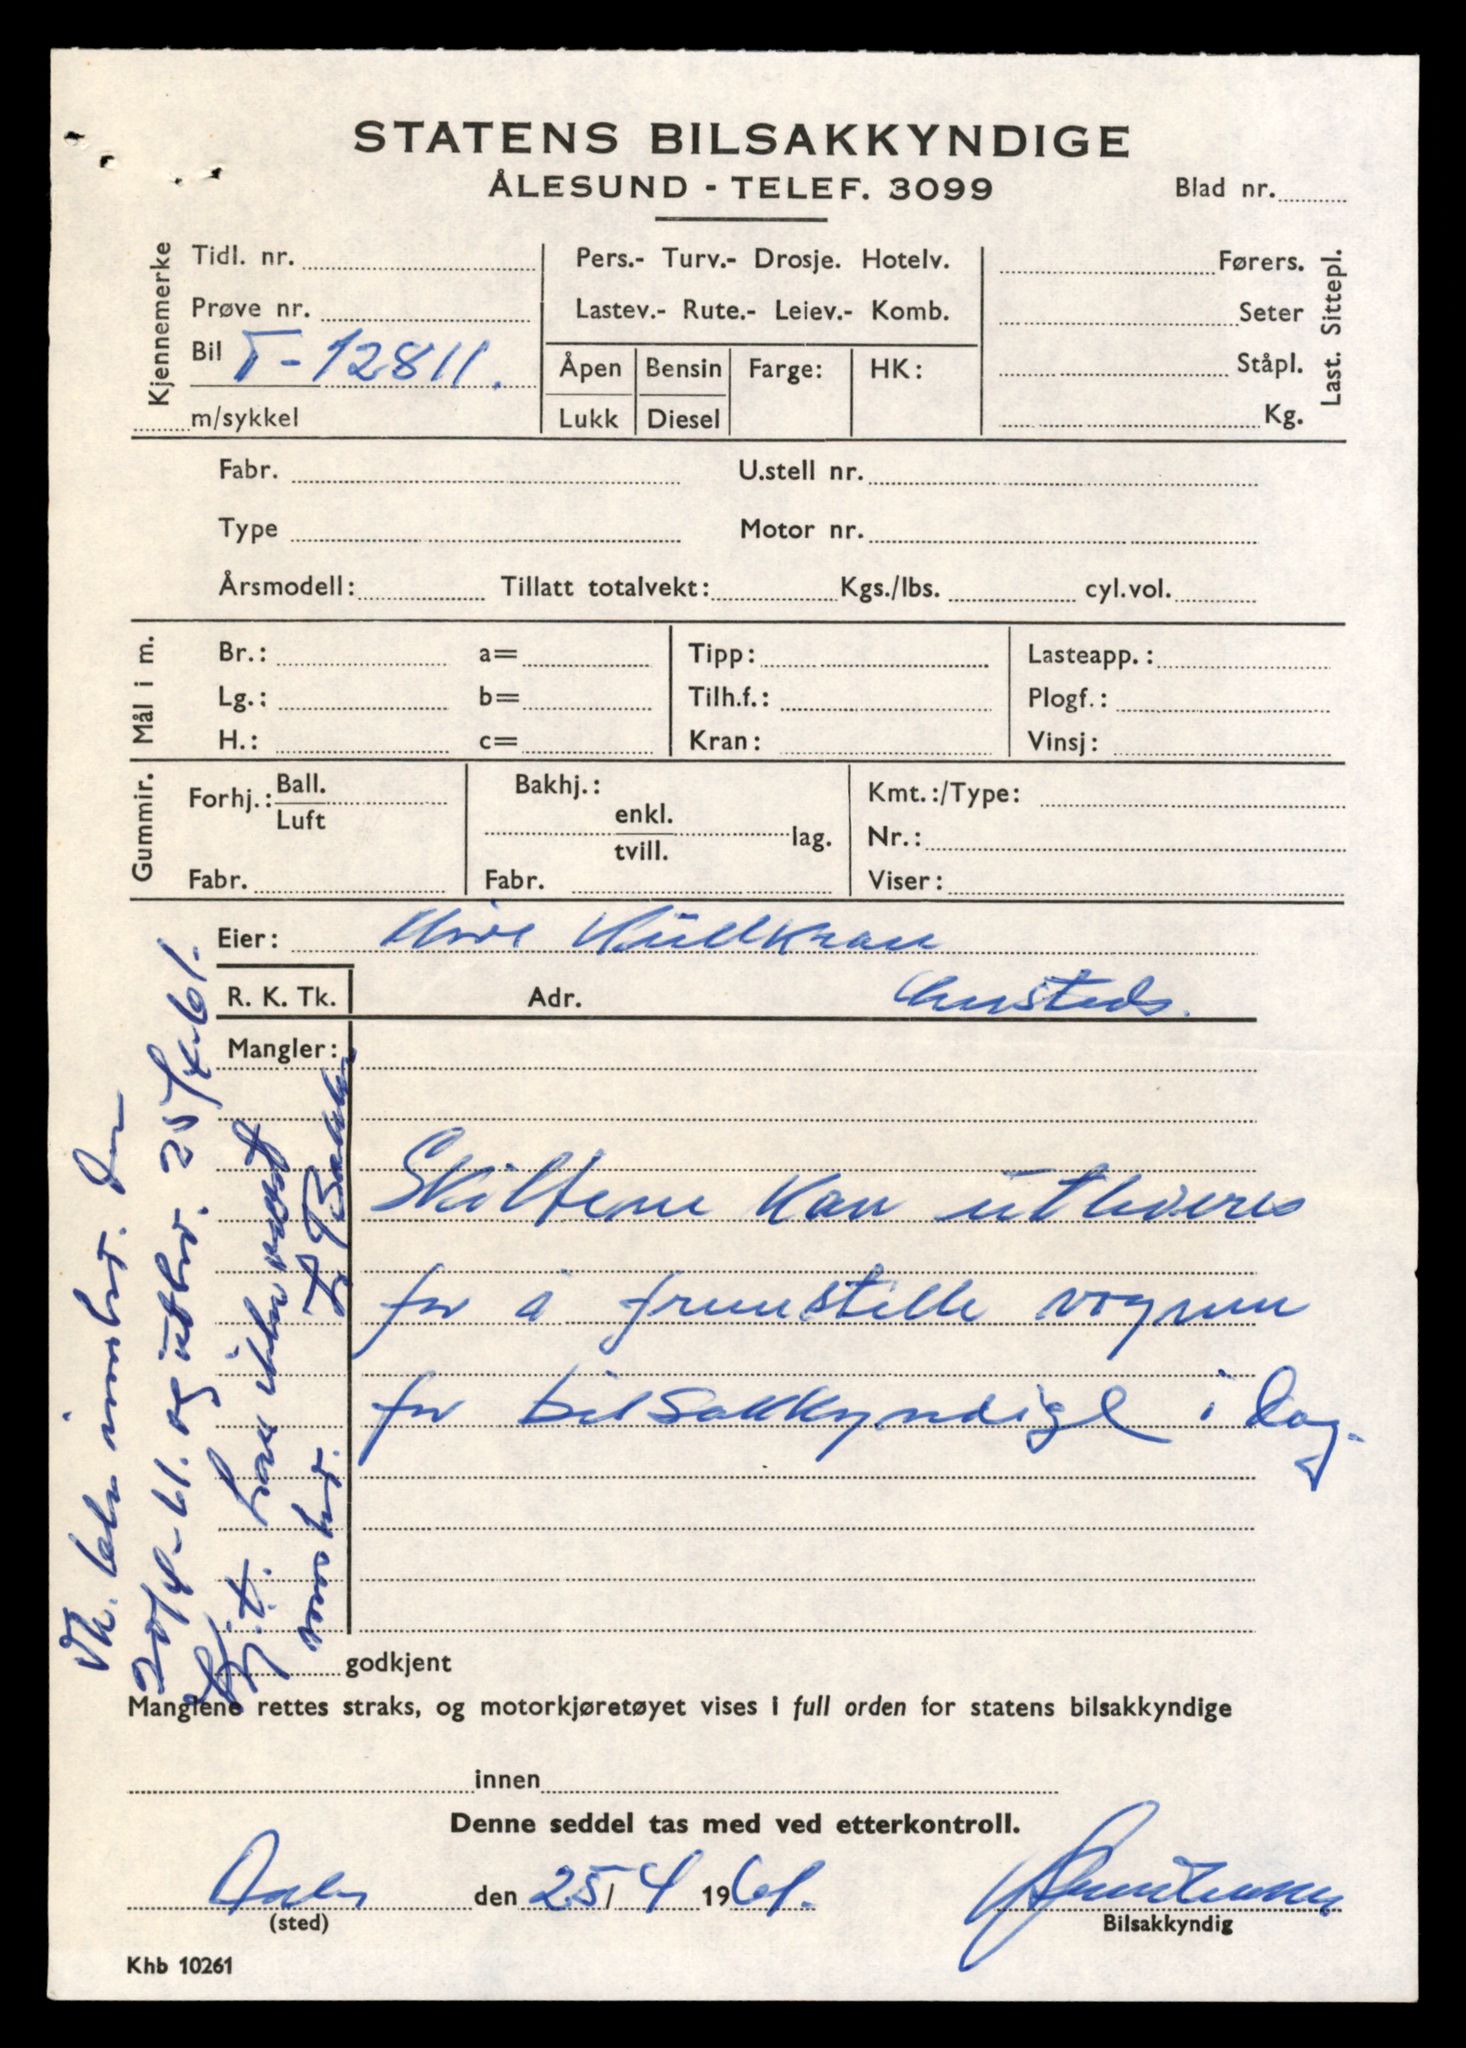 STATENS BILSAKKYNDIGE
ÅLESUND - TELEF. 3099
Blad nr.
Kjennemerke
Tidl. nr.
Prøve nr.
Bil T-12811.
m/sykkel
Pers.- Turv.- Drosje. Hotelv.
Lastev.- Rute.- Leiev.- Komb.
Åpen
Lukk
Bensin
Diesel
Farge:
HK:
Førers.
Seter
Ståpl.
Kg.
Last. Sittepl.
Fabr.
U.stell nr.
Type
Motor nr.
Årsmodell: Tillatt totalvekt: Kgs./lbs. cyl.vol.
Mål i m.
Br.: a=
Lg.: b=
H.: c=
Tipp:
Tilh.f.:
Kran:
Lasteapp.:
Plogf.:
Vinsj:
Gummir.
Forhj.: Ball.
Luft
Fabr.
Bakhj.:
enkl.
lag.
tvill.
Fabr.
Kmt.:/Type:
Nr.:
Viser:
Eier:
R. K. Tk.
Adr.
Mangler:
Skiltene kan utleveres
for å fremstille vognen
for bilsakkyndige i dag.
20/4-61. og utlev. 25/4-61.
godkjent
Manglene rettes straks, og motorkjøretøyet vises i full orden for statens bilsakkyndige
innen
Denne seddel tas med ved etterkontroll.
den 25/4 1961.
(sted)
Bilsakkyndig
Khb 10261